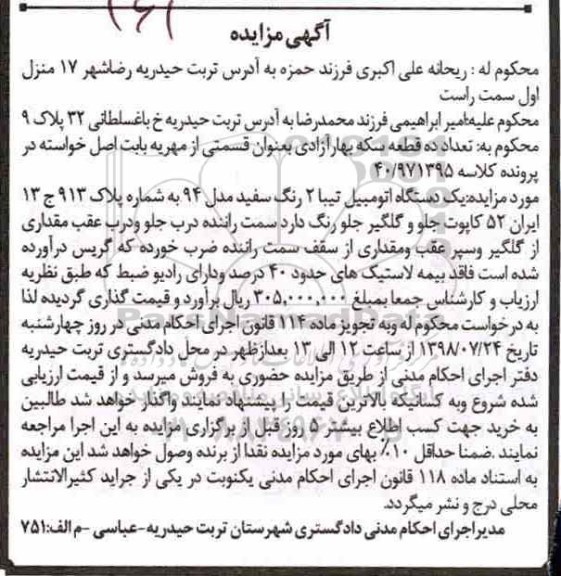 ۱۶۱
آگهی مزایده
محکوم له : ریحانه علی اکبری فرزند حمزه به آدرس تربت حیدریه رضاشهر ۱۷ منزل
اول سمت راست
محکوم علیه:امیر ابراهیمی فرزند محمدرضا به آدرس تربت حیدریه خ باغسلطانی ۳۲ پلاک ۹
محکوم به: تعداد ده قطعه سکه بهار آزادی بعنوان قسمتی از مهریه بابت اصل خواسته در
پرونده کلاسه ۴۰/۹۷۱۳۹۵
مورد مزایده:یک دستگاه اتومبیل تیبا ۲ رنگ سفید مدل ۹۴ به شماره پلاک ۹۱۳ ج ۱۳
ایران ۵۲ کاپوت جلو و گلگیر جلو رنگ دارد سمت راننده درب جلو ودرب عقب مقداری
از گلگیر وسپر عقب ومقداری از سقف سمت راننده ضرب خورده که گریس درآورده
شده است فاقد بیمه لاستیک های حدود ۴۰ درصد ودارای رادیو ضبط که طبق نظریه
ارزیاب و کارشناس جمعا بمبلغ ۳۰۵,۰۰۰,۰۰۰ ریال برآورد و قیمت گذاری گردیده لذا
به درخواست محکوم له وبه تجویز ماده ۱۱۴ قانون اجرای احکام مدنی در روز چهارشنبه
تاریخ ۱۳۹۸/۰۷/۲۴ از ساعت ۱۲ الی ۱۳ بعدازظهر در محل دادگستری تربت حیدریه
دفتر اجرای احکام مدنی از طریق مزایده حضوری به فروش میرسد و از قیمت ارزیابی
شده شروع وبه کسانیکه بالاترین قیمت را پیشنهاد نمایند واگذار خواهد شد طالبین
به خرید جهت کسب اطلاع بیشتر ۵ روز قبل از برگزاری مزایده به این اجرا مراجعه
نمایند .ضمنا حداقل ۱۰٪ بهای مورد مزایده نقدا از برنده وصول خواهد شد این مزایده
به استناد ماده ۱۱۸ قانون اجرای احکام مدنی یکنوبت در یکی از جراید کثیرالانتشار
محلی درج و نشر میگردد.
مدیر اجرای احکام مدنی دادگستری شهرستان تربت حیدریه-عباسی -م الف:۷۵۱